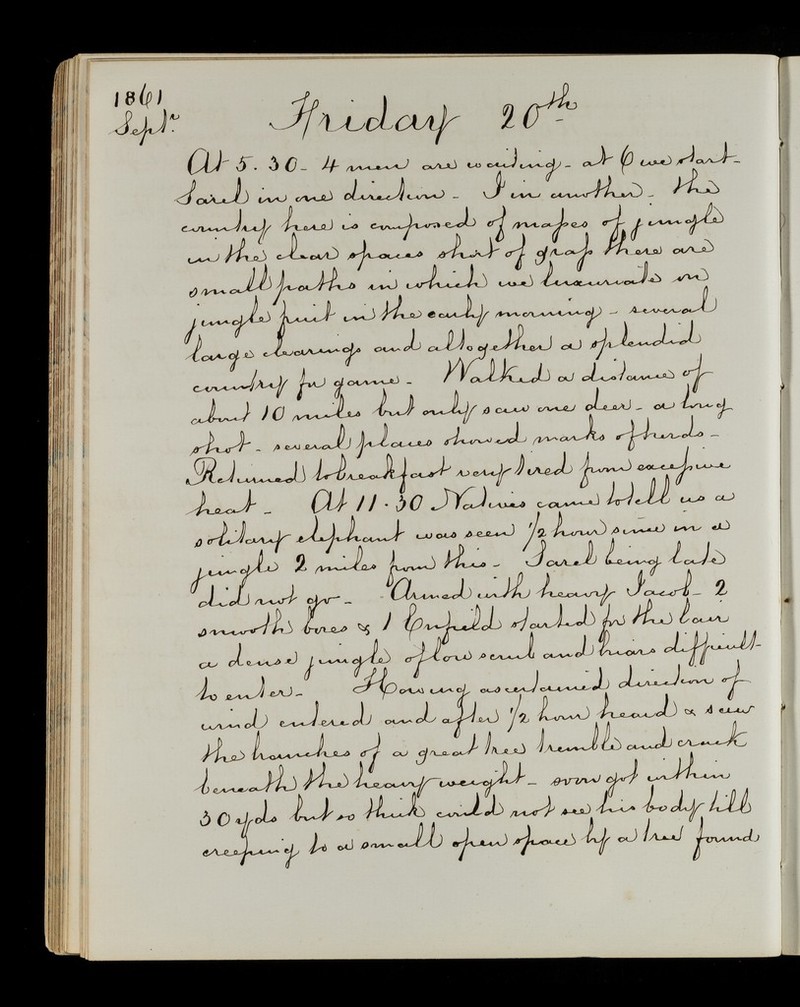 1861
Septr.
Friday 20th
At 5.30 - 4 men are waiting - at 6 we start -
Sarel in one direction - I in another - The
country here is composed of maſses of jungle
in the clear spaces short of graſs there are
small paths in which we luxuriate on
jungle fruit in the early morning - several
large clearings and altogether a splendid
country for game - Walked a distance of
about 10 miles but only saw one deer - a long
shot - several places showed marks of herds -
Returned to breakfast very tired from exceſsive
heat - At 11.30 Natives came to tell us a
solitary elephant was seen 1/2 hour since in a
jungle 2 miles from this - Sarel being late
did not go - Armed with heavy Jacob - 2
smooth bores & 1 Enfield started for the lair
a dense jungle of low scrub and briars difficult
to enter - Having ascertained direction of
wind entered and after 1/2 hour heard & saw
the branches of a great tree tremble and crack
beneath the heavy weight - soon got within
30 yds but so thick could not see his body till
creeping to a small open space by a tree found